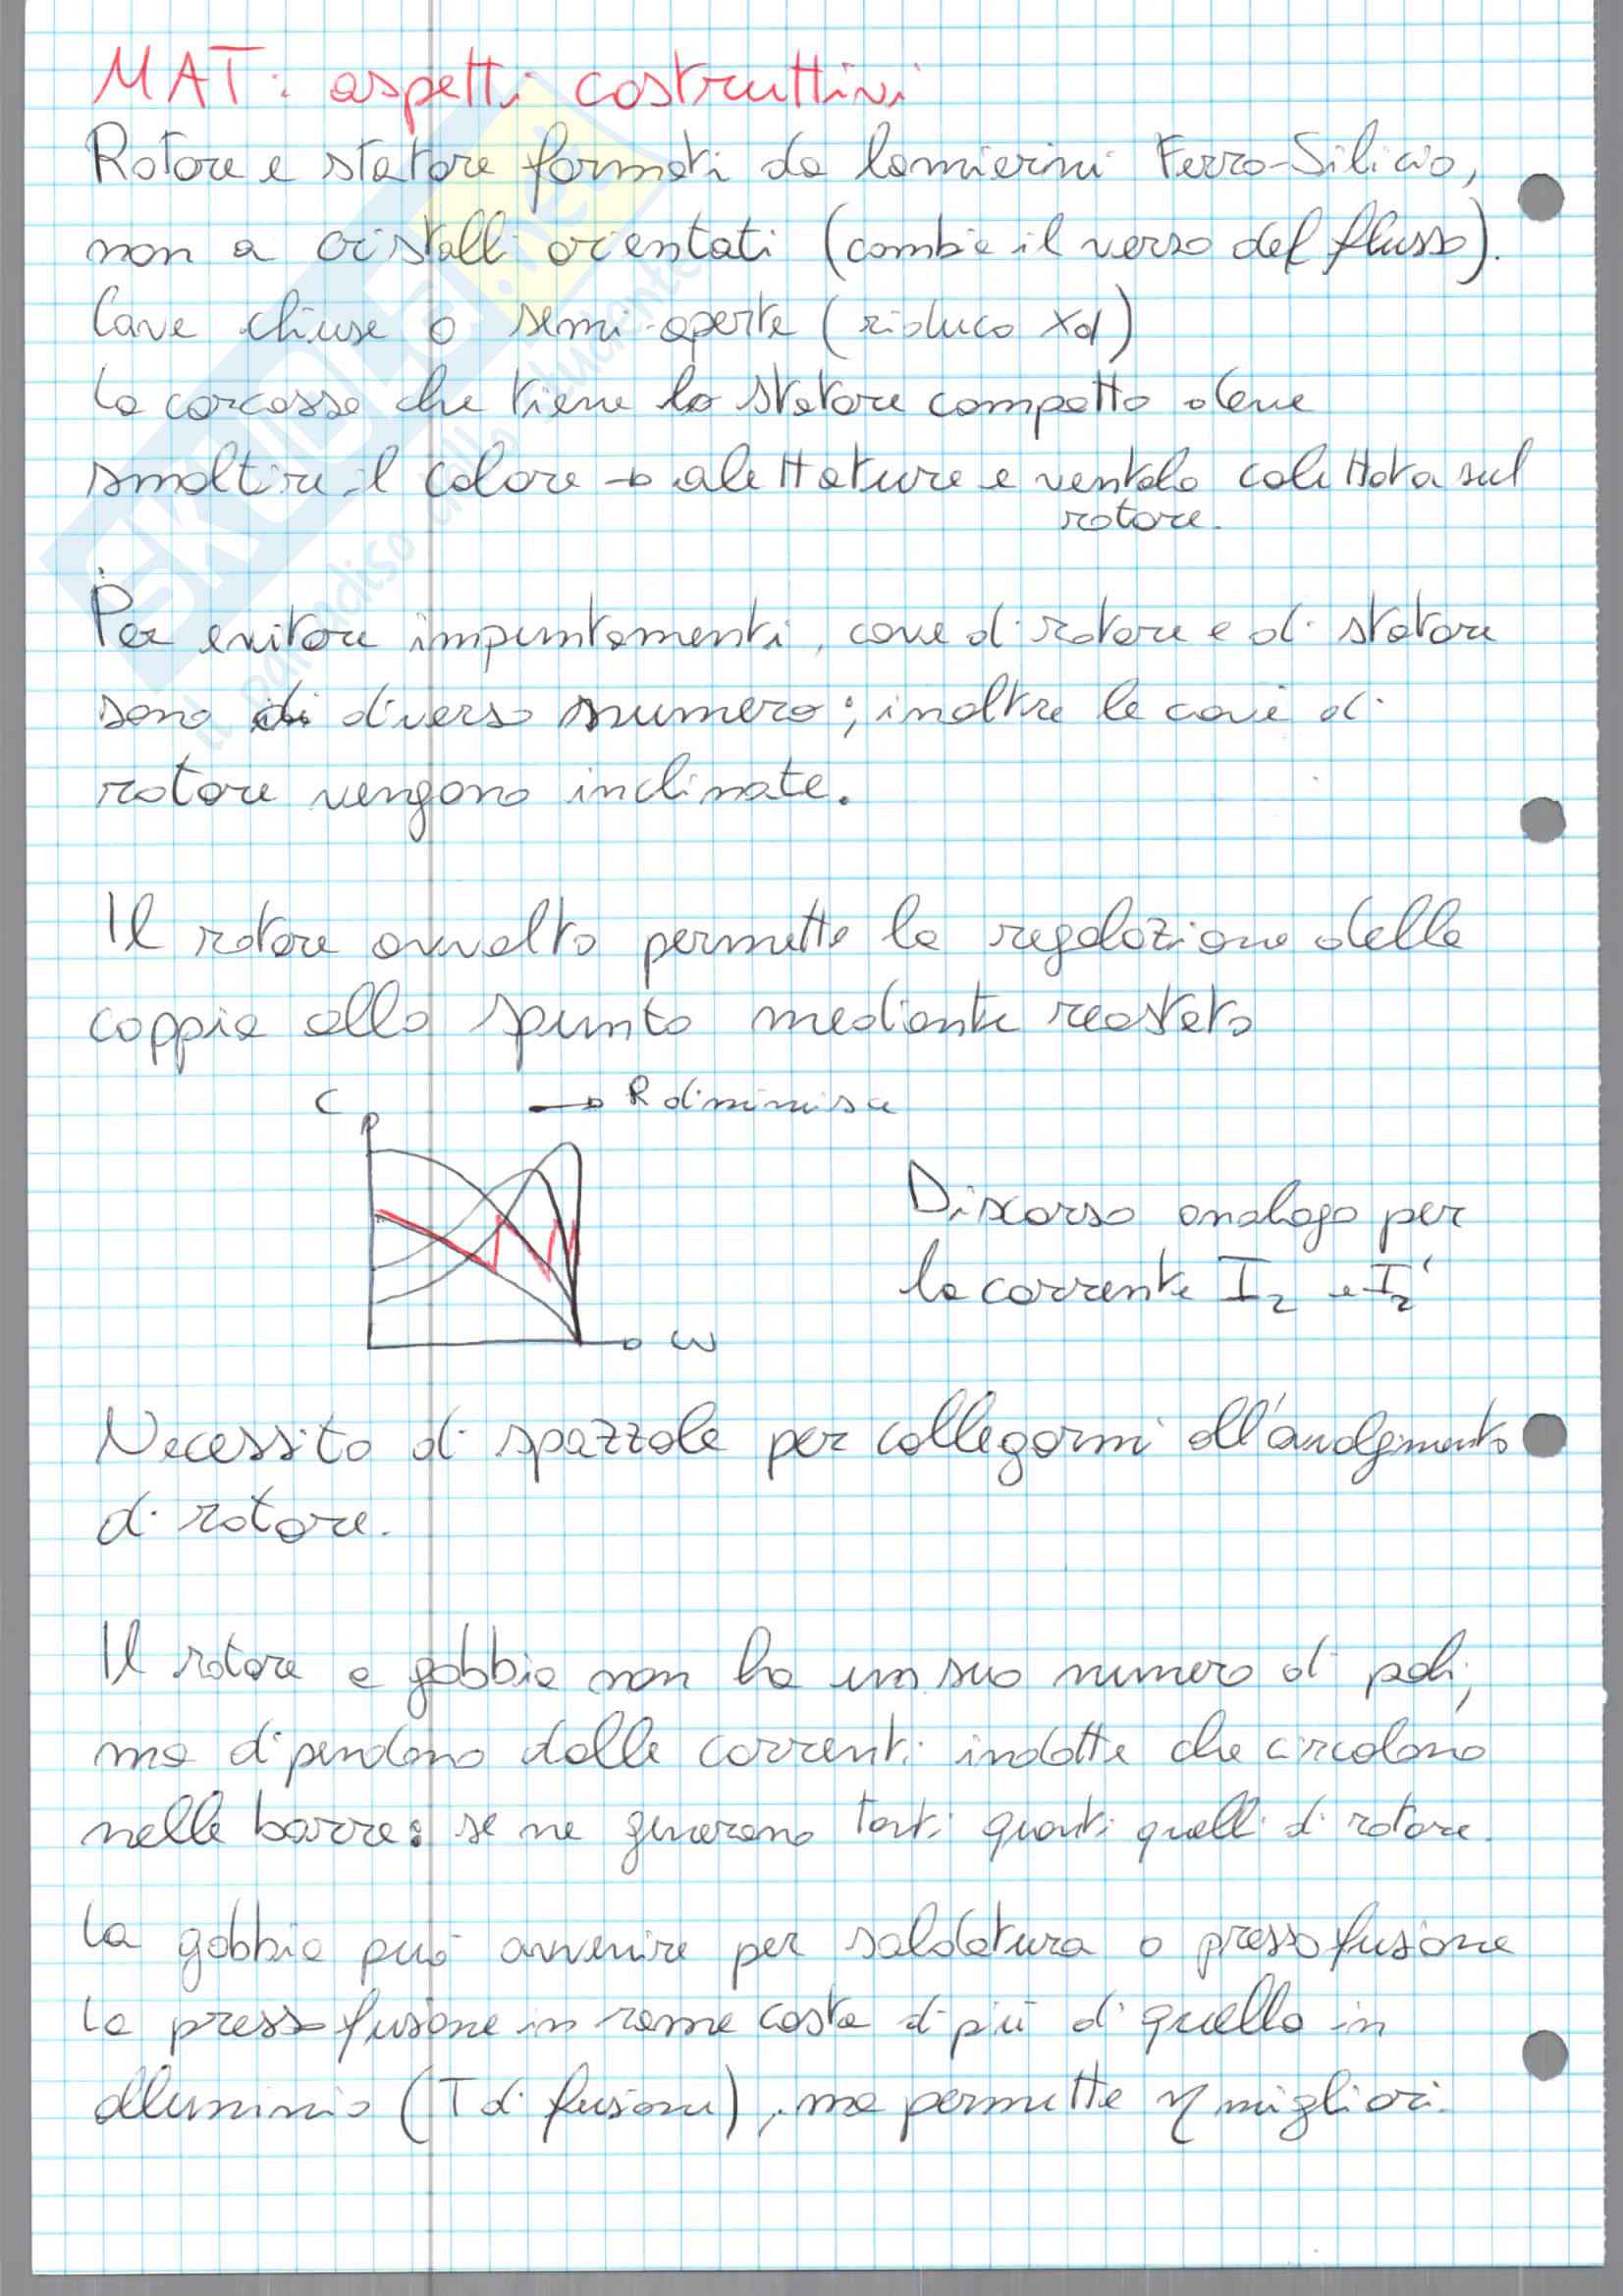 MAT: aspetti costruttivi
Rotore e statore formati da lamierini Ferro-Silicio,
non a cristalli orientati (cambia il verso del flusso).
Cave chiuse o semi-aperte (riduco Xd)
La carcassa che tiene lo statore compatto deve
smaltire il calore → alettature e ventola calettata sul
rotore.
Per evitare impuntamenti, cave di rotore e di statore
sono di diverso numero; inoltre le cave di
rotore vengono inclinate.
Il rotore avvolto permette la regolazione della
coppia allo spunto mediante reostato
C → R diminuisce
Discorso analogo per
la corrente I2 e I2'
ω
Necessito di spazzole per collegarmi all'avvolgimento
di rotore.
Il rotore a gabbia non ha un suo numero di poli,
ma dipendono dalle correnti indotte che circolano
nelle barre: se ne generano tanti quanti quelli di rotore.
La gabbia può avvenire per saldatura o pressofusione
La pressofusione in rame costa di più di quella in
alluminio (T di fusione), ma permette η migliori.
SKUOLA.net
il paradiso dello studente